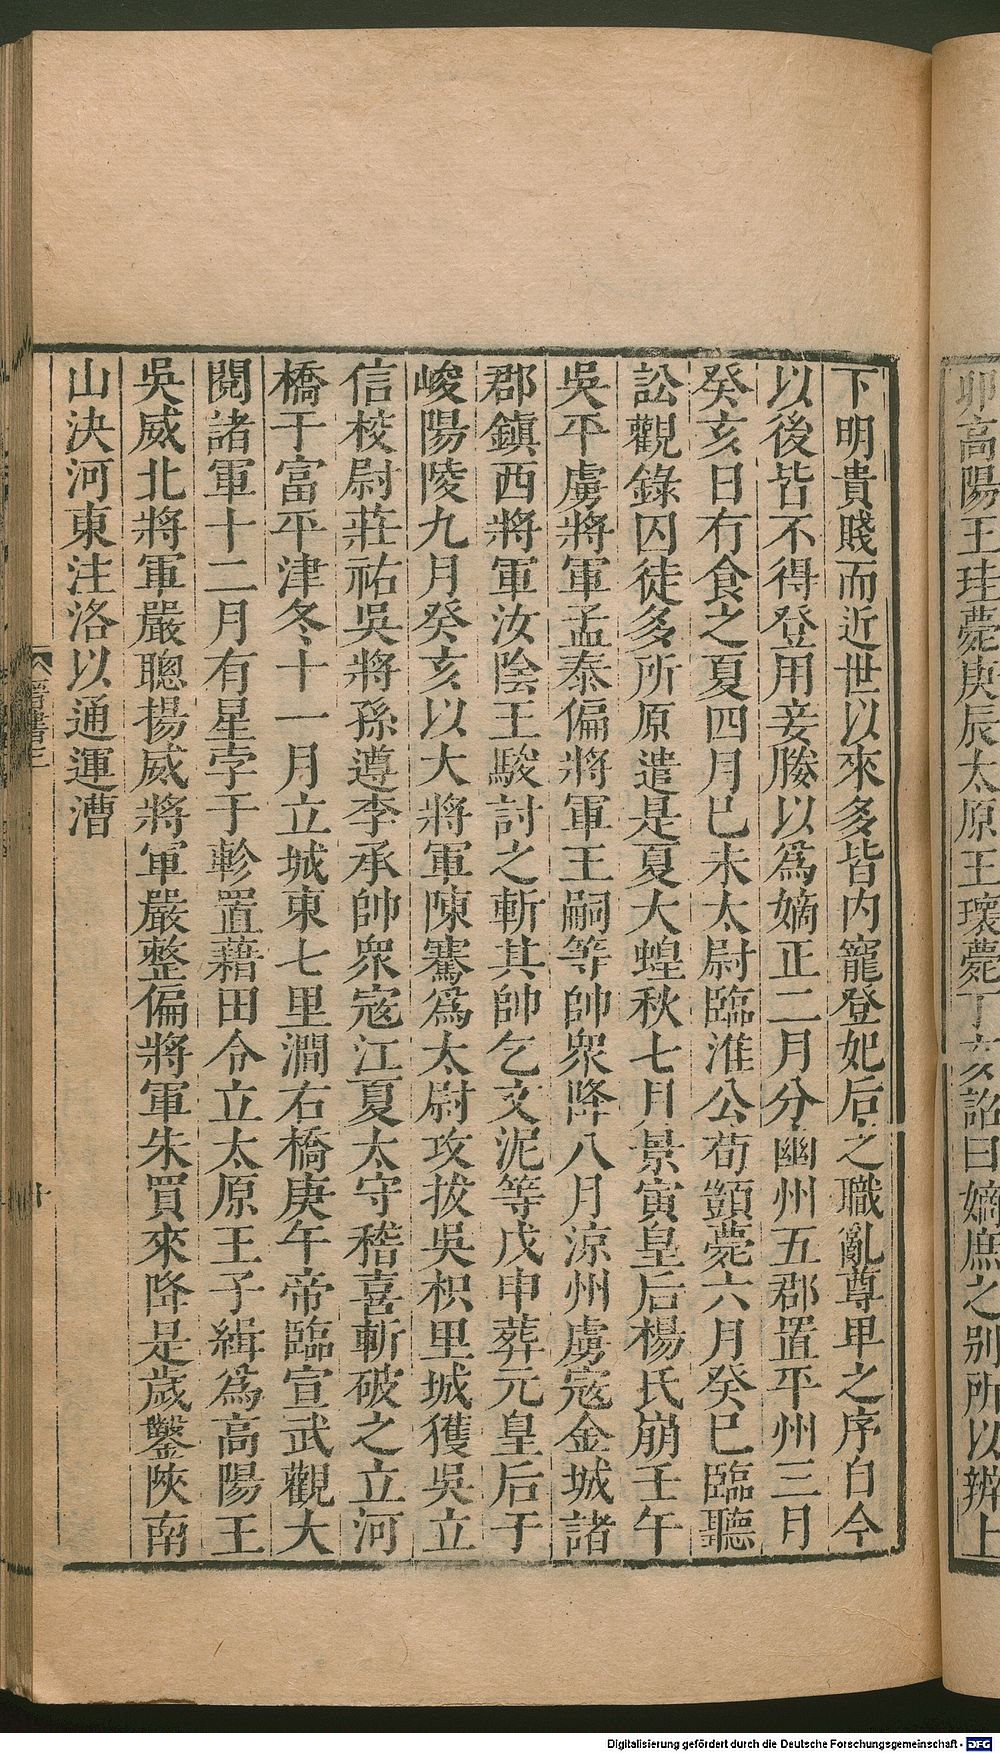 卯高陽王珪薨庚辰太原王瓌薨丁亥詔曰嫡庶之別所以辨上
下明貴賤而近世以來多皆內寵登妃后之職亂尊卑之序自今
以後皆不得登用妾媵以爲嫡正二月分幽州五郡置平州三月
癸亥日有食之夏四月已未太尉臨淮公荀顗薨六月癸巳臨聽
訟觀錄囚徒多所原遣是夏大蝗秋七月景寅皇后楊氏崩壬午
吳平虜將軍孟泰偏將軍王嗣等帥衆降八月涼州虜寇金城諸
郡鎮西將軍汝陰王駿討之斬其帥乞文泥等戊申葬元皇后于
峻陽陵九月癸亥以大將軍陳騫爲太尉攻拔吳枳里城獲吳立
信校尉莊祐吳將孫遵李承帥衆寇江夏太守嵇喜斬破之立河
橋于富平津冬十一月立城東七里澗石橋庚午帝臨宣武觀大
閱諸軍十二月有星孛于軫置藉田令立太原王子緝爲高陽王
吳威北將軍嚴聰揚威將軍嚴整偏將軍朱買來降是歲鑿陝南
山決河東注洛以通運漕
晉書三
十
Digitalisierung gefördert durch die Deutsche Forschungsgemeinschaft - DFG